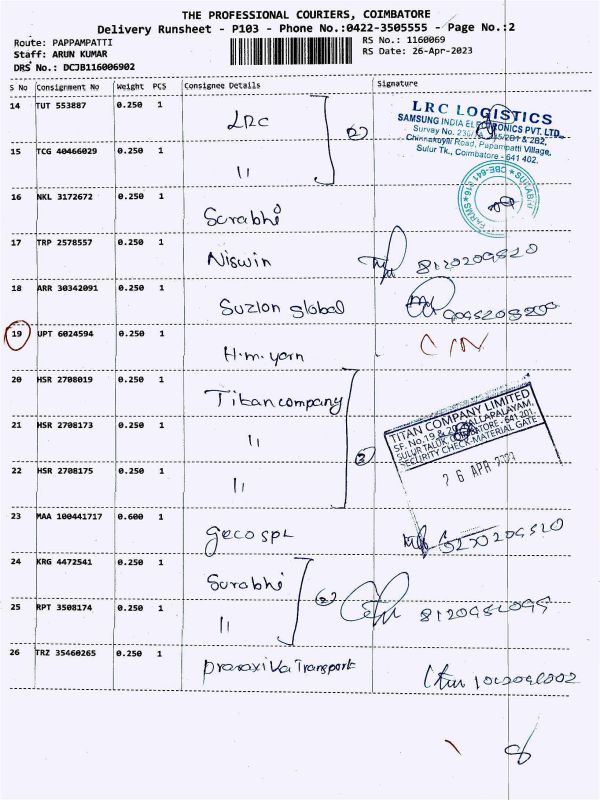 THE PROFESSIONAL COURIERS, COIMBATORE
Delivery Runsheet - P103 - Phone No.:0422-3505555 - Page No.:2
Route: PAPPAMPATTI
RS No.: 1160069
Staff: ARUN KUMAR
RS Date: 26-Apr-2023
DRS No.: DCJB116006902
S No Consignment No Weight PCS Consignee Details Signature
14 TUT 553887 0.250 1 LRC (2)
LRC LOGISTICS
SAMSUNG INDIA ELECTRONICS PVT. LTD.
Chinnakuyili Road, Papampatti Village,
Sulur Tk., Coimbatore - 641 402.
15 TCG 40466029 0.250 1 "
16 NKL 3172672 0.250 1 Surabhi
17 TRP 2578557 0.250 1 Niswin
18 ARR 30342091 0.250 1 Suzlon global
19 UPT 6024594 0.250 1 H.m. yarn
20 HSR 2708019 0.250 1 Titan company
TITAN COMPANY LIMITED
SECURITY CHECK-MATERIAL GATE
26 APR
21 HSR 2708173 0.250 1 "
(3)
22 HSR 2708175 0.250 1 "
23 MAA 100441717 0.600 1 geco spl
24 KRG 4472541 0.250 1 Surabhi (2)
25 RPT 3508174 0.250 1 "
26 TRZ 35460265 0.250 1
8